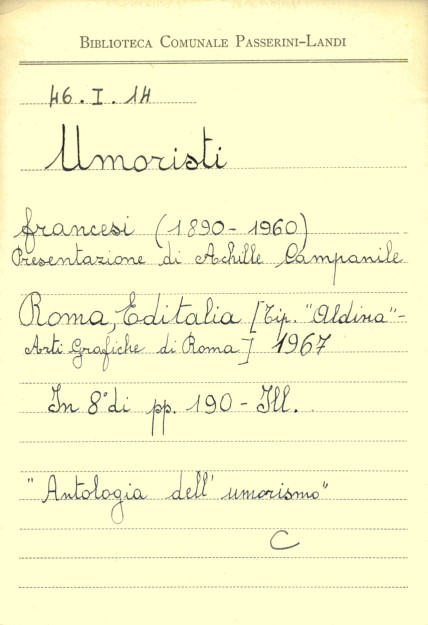 BIBLIOTECA COMUNALE PASSERINI-LANDI
46.I.14
Umoristi
francesi (1890-1960)
Presentazione di Achille Campanile
Roma, Editalia [Tip. "Aldina"-
Arti Grafiche di Roma] 1967
In 8° di pp. 190 - Ill.
"Antologia dell'umorismo"
C